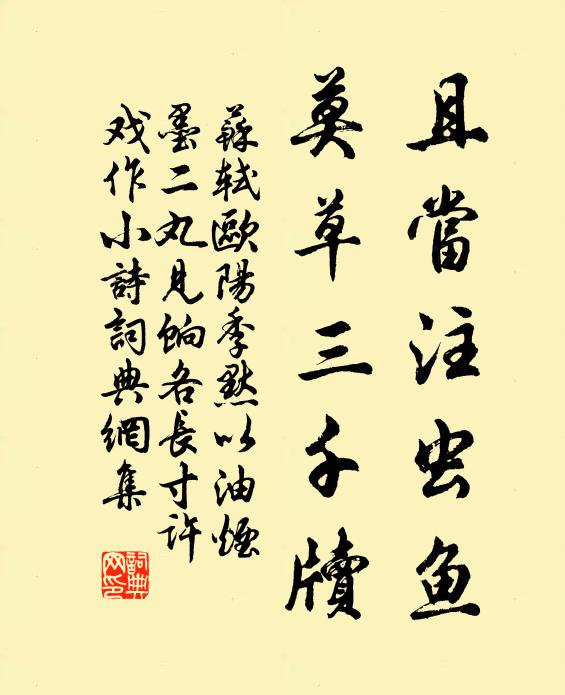 且當注虫鱼
莫草三千牘
蘇軾歐陽季默以油煙
墨二丸見餉各長寸許
戏作小詩詞典網集
詞典
网印